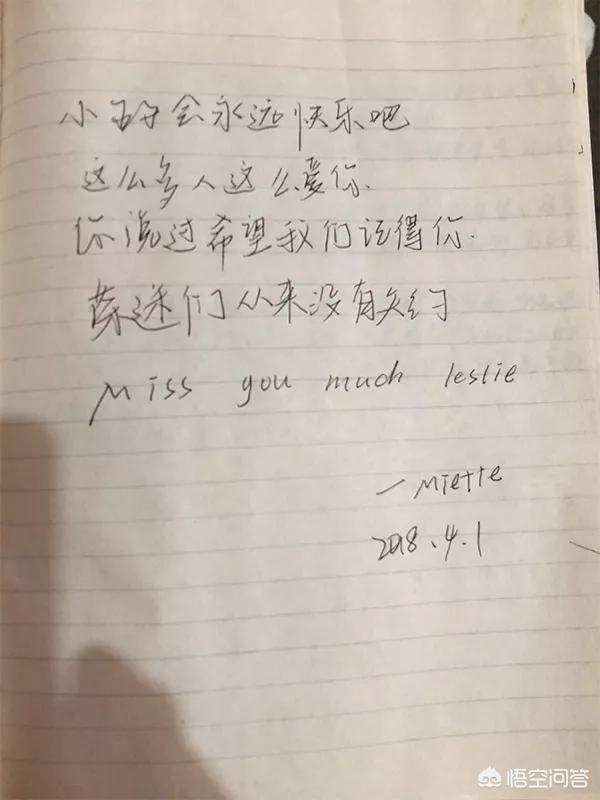 小哥哥会永远快乐吧
这么多人这么爱你.
你说过希望我们记得你.
荣迷们从来没有失约
Miss you much leslie
— Miette
2018.4.1
悟空问答